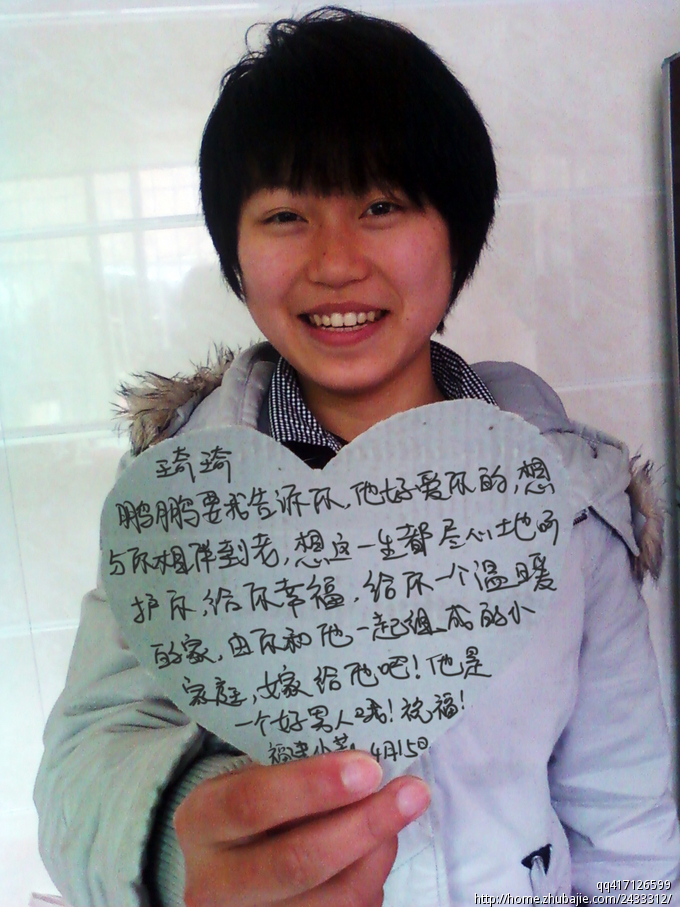 王琦琦
鹏鹏要我告诉你,他好爱你的,想
与你相伴到老,想这一生都尽心地呵
护你,给你幸福,给你一个温暖
的家,由你和他一起组成的小
家庭,嫁给他吧!他是
一个好男人哦!祝福!
福建小芳 4月15日
qq417126599
http://home.zhubajie.com/2433312/